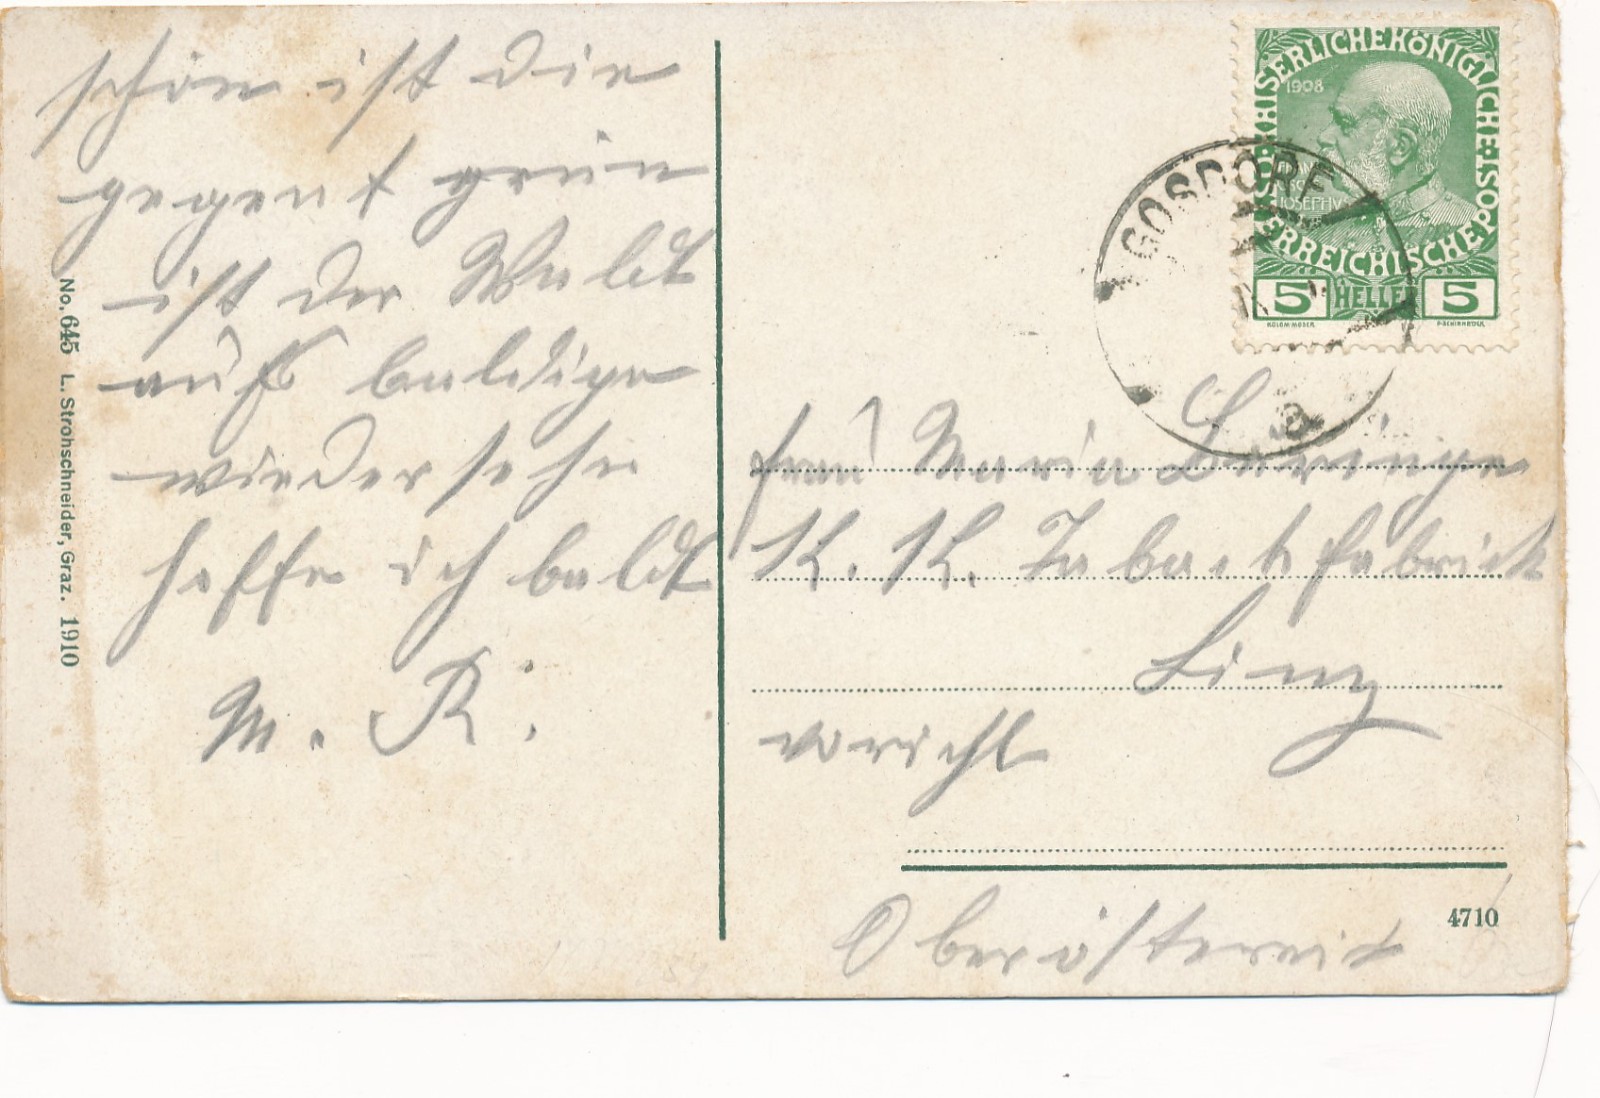 schön ist die
gegent grün
ist der Waldt
auf baldige
wiedersehn
hoffe ich baldt
M. R.
No. 645 L. Strohschneider, Graz. 1910
KAISERLICHE KÖNIGLICHE ÖSTERREICHISCHE POST
1908
FRANCISCVS JOSEPHVS I
5 HELLER 5
KOLOM. MOSER F. SCHIRNBÖCK
GOSDORF
a
frau Maria
K. K. Tabackfabrick
Linz
Oberöstereich
4710